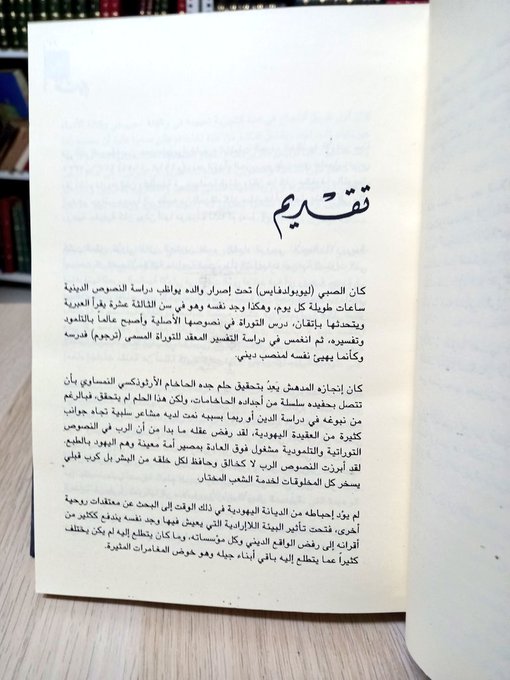 تقديم
كان الصبي (ليوبولدفايس) تحت إصرار والده يواظب دراسة النصوص الدينية
ساعات طويلة كل يوم، وهكذا وجد نفسه وهو في سن الثالثة عشرة يقرأ العبرية
ويتحدثها بإتقان، درس التوراة في نصوصها الأصلية وأصبح عالماً بالتلمود
وتفسيره، ثم انغمس في دراسة التفسير المعقد للتوراة المسمى (ترجوم) فدرسه
وكأنما يهيئ نفسه لمنصب ديني.
كان إنجازه المدهش يَعِدُ بتحقيق حلم جده الحاخام الأرثوذكسي النمساوي بأن
تتصل بحفيده سلسلة من أجداده الحاخامات، ولكن هذا الحلم لم يتحقق، فبالرغم
من نبوغه في دراسة الدين أو ربما بسببه نمت لديه مشاعر سلبية تجاه جوانب
كثيرة من العقيدة اليهودية، لقد رفض عقله ما بدا من أن الرب في النصوص
التوراتية والتلمودية مشغول فوق العادة بمصير أمة معينة وهم اليهود بالطبع.
لقد أبرزت النصوص الرب لا كخالق وحافظ لكل خلقه من البشر بل كرب قبلي
يسخر كل المخلوقات لخدمة الشعب المختار.
لم يؤد إحباطه من الديانة اليهودية في ذلك الوقت إلى البحث عن معتقدات روحية
أخرى، فتحت تأثير البيئة اللاإرادية التي يعيش فيها وجد نفسه يندفع ككثير من
أقرانه إلى رفض الواقع الديني وكل مؤسساته، وما كان يتطلع إليه لم يكن يختلف
كثيراً عما يتطلع إليه باقي أبناء جيله وهو خوض المغامرات المثيرة.